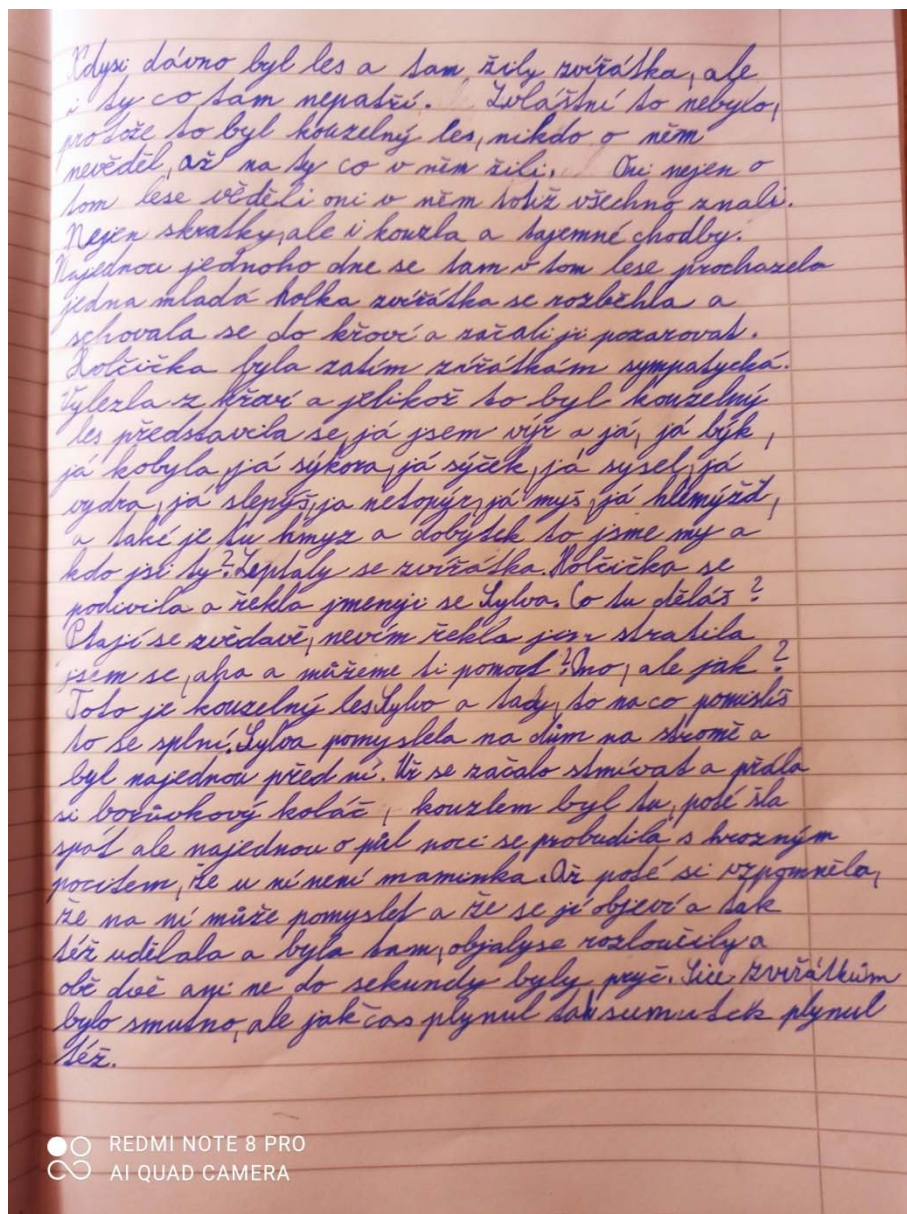 Kdysi dávno byl les a tam žily zvířátka, ale
i ty co tam nepatří. Zvláštní to nebylo,
protože to byl kouzelný les, nikdo o něm
nevěděl, až na ty co v něm žili. Oni nejen o
tom lese věděli oni v něm totiž všechno znali.
Nejen skratky, ale i kouzla a tajemné chodby.
Najednou jednoho dne se tam v tom lese prochazela
jedna mladá holka zvířátka se rozběhla a
schovala se do křoví a začali ji pozarovat.
Holčička byla zatím zvířátkám sympatycká.
Vylezla z křoví a jelikož to byl kouzelný
les představila se, já jsem výr a já, já býk,
já kobyla, já sýkora, já sýček, já sysel, já
vydra, já slepýš, ja netopýr, já myš, já hlemýžď,
a také je tu hmyz a dobytek to jsme my a
kdo jsi ty? Zeptaly se zvířátka. Holčička se
podivila a řekla jmenuji se Sylva. Co tu děláš?
Ptají se zvědavě, nevím řekla jen stratila
jsem se, aha a můžeme ti pomoct? Ano, ale jak?
Toto je kouzelný les Sylvo a tady, to na co pomislíš
to se splní. Sylva pomyslela na dům na stromě a
byl najednou před ní. Už se začalo stmívat a přála
si borůvkový koláč, kouzlem byl tu, poté šla
spát ale najednou o půl noci se probudila s hrozným
pocitem, že u ní není maminka. Až poté si vzpomněla,
že na ní může pomyslet a že se jí objeví a tak
též udělala a byla tam, objaly se rozloučily a
obě dvě ani ne do sekundy byly pryč. Sice zvířátkům
bylo smutno, ale jak čas plynul tak sumutek plynul
též.
REDMI NOTE 8 PRO
AI QUAD CAMERA